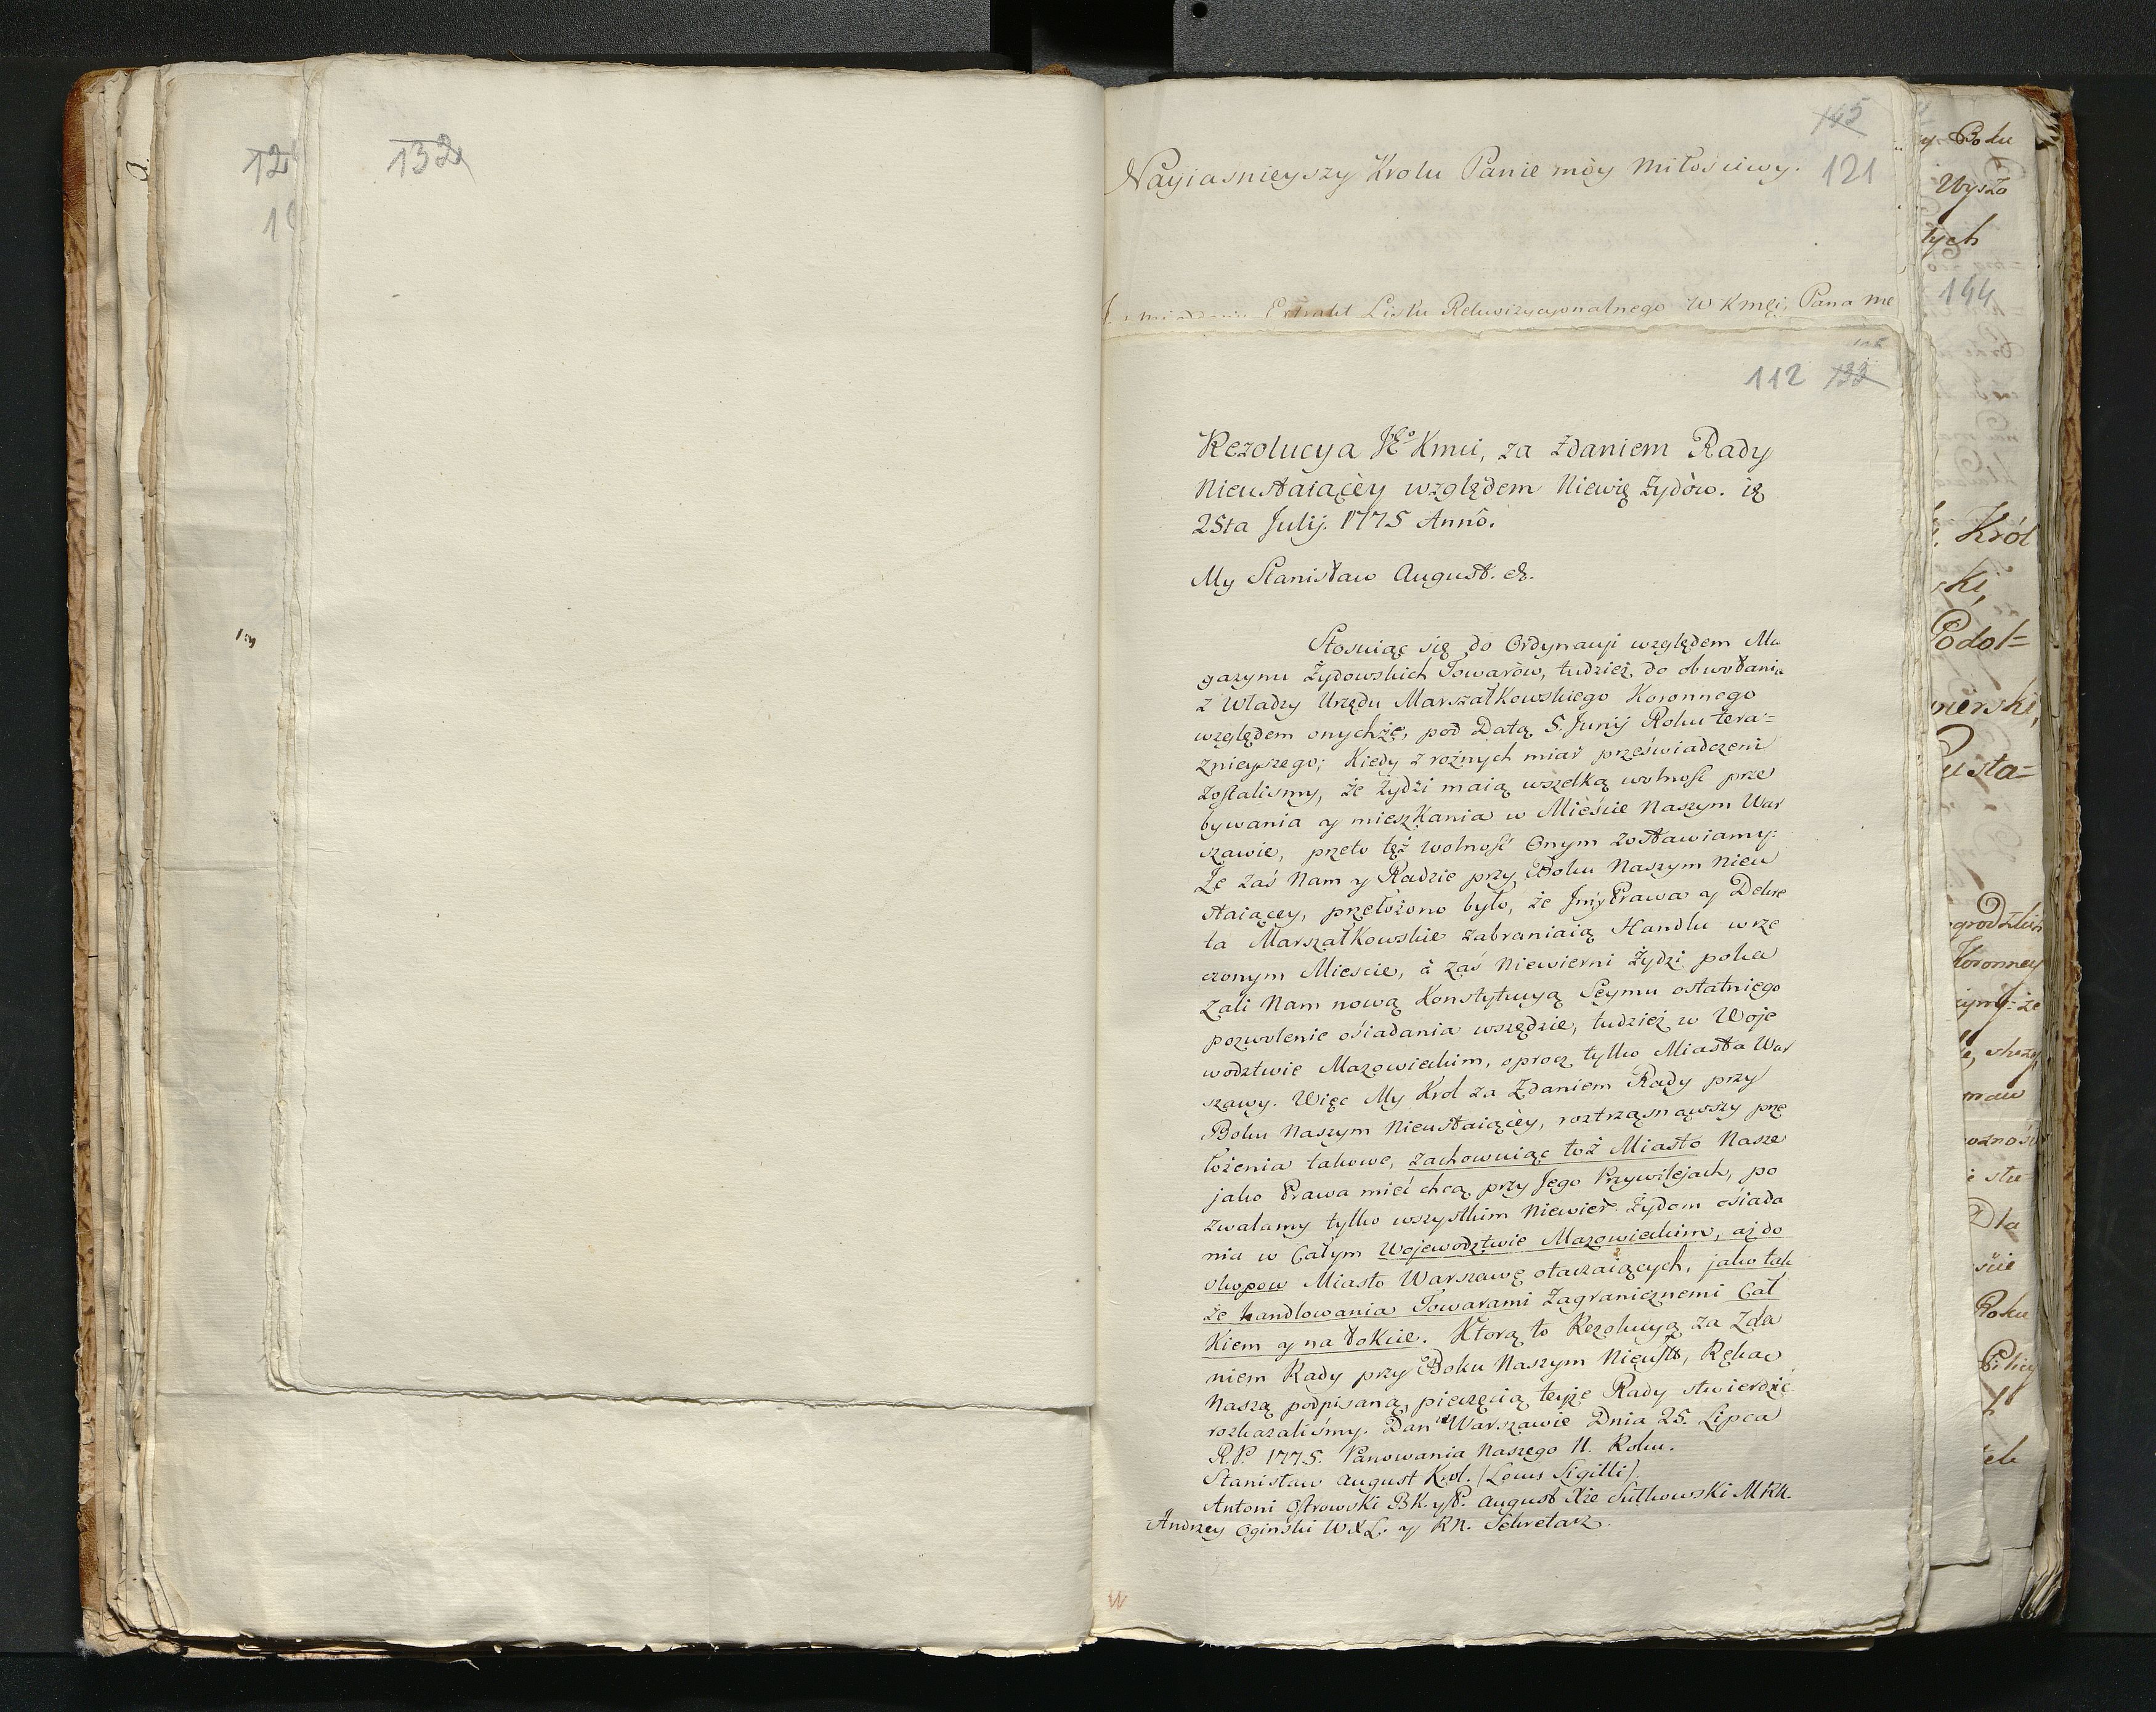 12
132
145
Nayiasnieyszy Krolu Panie móy Miłosciwy. 121
Listu Rekwizycyonalnego W Kmci, Pana me
112 133
Rezolucya JKo Kmci, za Zdaniem Rady
Nieustaiącèy względem Niewię Żydòw.
25ta Julij. 1775 Annô.
My Stanisław August. &.
Stosuiąc się do Ordynacyi względem Ma
gazynu Żydowskich Towaròw, tudzież do obwołania
z Władzy Urzędu Marszałkowskiego Koronnego
względem onychże, pod Datą 5. Junij Roku tera=
znieyszego; Kiedy z rożnych miar przeświadczeni
zostalismy, że Żydzi maią wszelką wolność prze
bywania y mieszkania w Mieście Naszym War
szawie, przeto też wolność Onym zostawiamy:
Że zaś Nam y Radzie przy Boku Naszym Nieu
staiącey, przełożono było, że Prawa y Dekre
ta Marszałkowskie zabraniaią Handlu w rze
czonym Miescie, à zaś Niewierni Żydzi poka
zali Nam nową Konstytucyą Seymu ostatniego
pozwolenie ośiadania wszędzie, tudzież w Woje
wodztwie Mazowieckim, oprocz tylko Miasta War
szawy. Więc My Krol za Zdaniem Rady przy
Boku Naszym Nieustaiącèy, roztrząsnąwszy prze
łożenia takowe, zachowuiąc toż Miasto Nasze
jako Prawa mieć chcą przy Jego Przywilejach, po
zwalamy tylko wszystkim Niewier. Żydom ośiada
nia w Całym Wojewodztwie Mazowieckim, aż do
Okopow Miasto Warszawę otaczaiących, jako tak
że handlowania Towarami Zagranicznemi Cał
Kiem y na łokcie. Ktorą to Rezolucyą za Zda
niem Rady przy Boku Naszym Nieust, Ręką
Naszą podpisaną, pieczęcią teyże Rady stwierdzić
rozkazaliśmy. Dan w Warszawie Dnia 25. Lipca
R.P. 1775. Panowania Naszego 11. Roku.
Stanisław August Krol. (Locus Sigilli).
Antoni Ostrowski BK. y P. August Xże Sułkowski MRN.
Andrzey Oginski WXL. y RN. Sekretarz.
y Boku
Wyszo
tych
144
Król
ski,
Podol=
mierski,
Usta=
Koronney
Dla
Roku